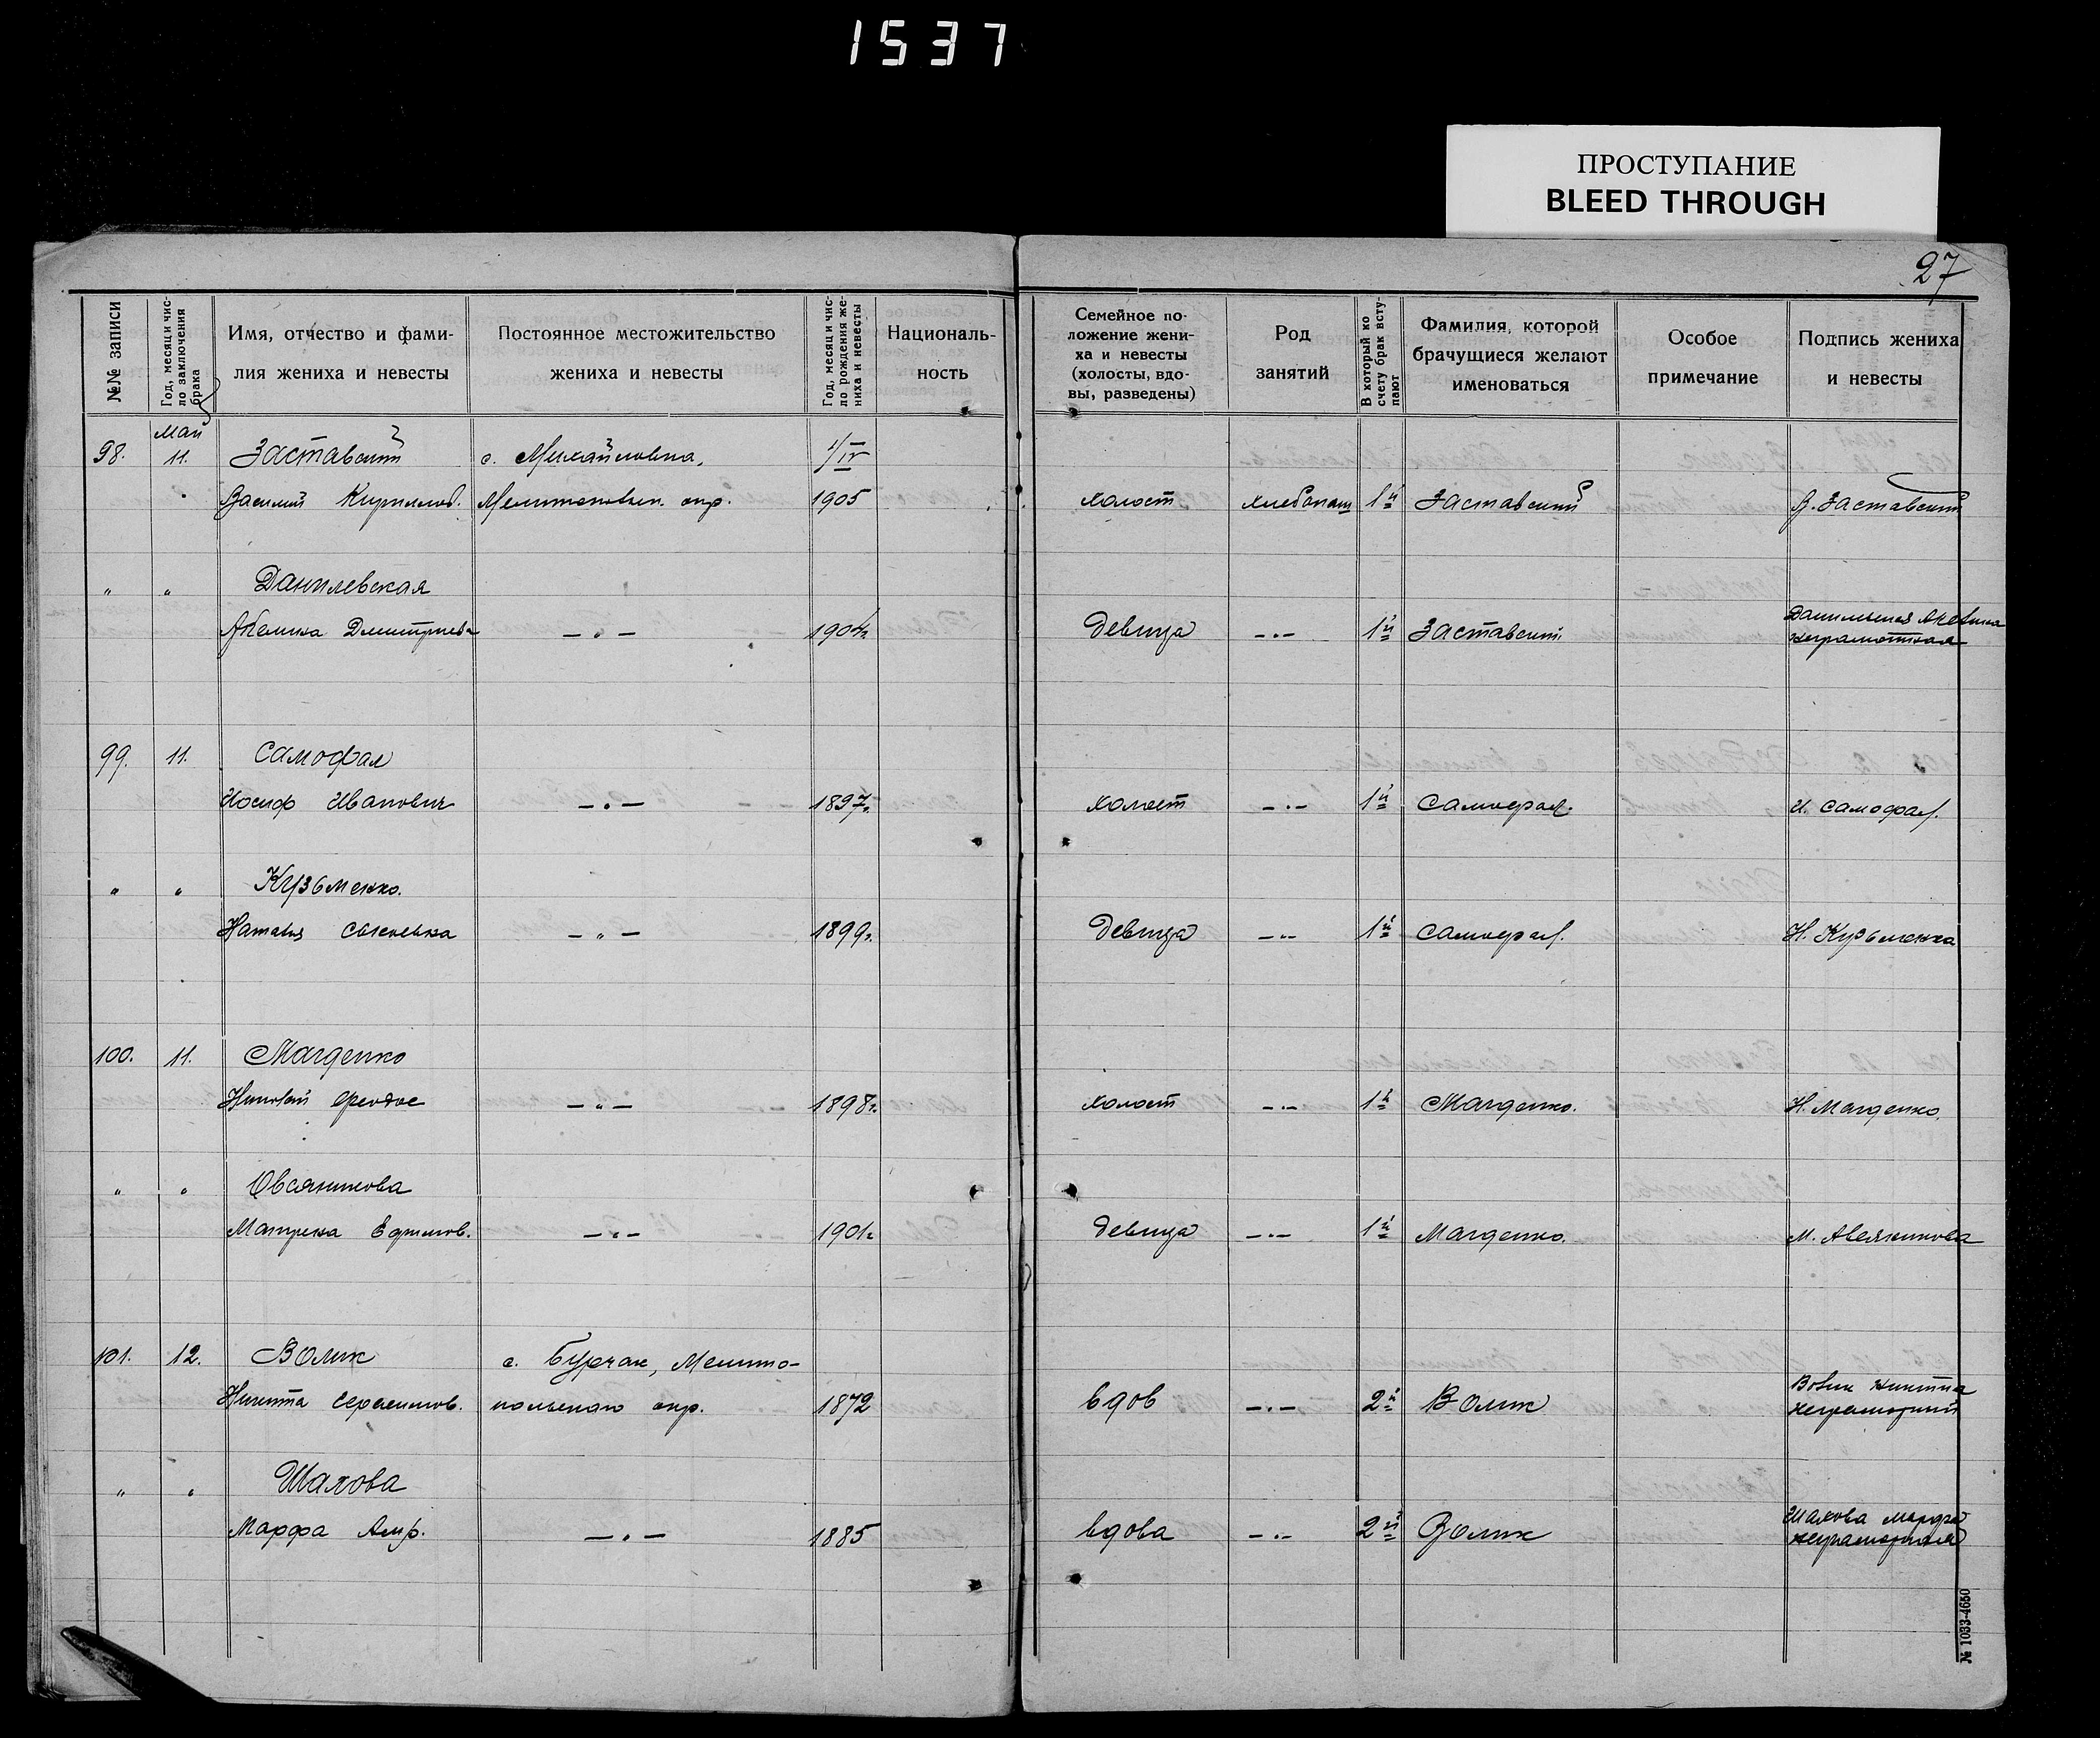 1537
ПРОСТУПАНИЕ
BLEED THROUGH
27
№№ записи
Год, месяц и чис-
ло заключения
брака
Имя, отчество и фами-
лия жениха и невесты
Постоянное местожительство
жениха и невесты
Год, месяц и чис-
ло рождения же-
ниха и невесты
Националь-
ность
Семейное по-
ложение жени-
ха и невесты
(холосты, вдо-
вы, разведены)
Род
занятий
В который ко
счету брак всту-
пают
Фамилия, которой
брачущиеся желают
именоваться
Особое
примечание
Подпись жениха
и невесты
Май
98. 11. Заставский с. Михайловка, 1/IV
Василий Кириллов. Мелитопольск. окр. 1905 холост хлебопаш 1й Заставский В. Заставский
" " Данилевская
Акелина Дмитриев —"— 1904г девица —"— 1й Заставский Данильевская Акелина
неграмотная
99. 11. Самофал
Иосиф Иванович —"— 1897г. холост —"— 1й Самофал. И. Самофал.
" " Кузьменко.
Наталья —"— 1899г. девица —"— 1й Самофал. Н. Кузьменка
100. 11. Магденко
Николай Феодос —"— 1898г. холост —"— 1й Магденко. Н. Магденко.
" " Овсяникова
Матрена Ефимов. —"— 1901г. девица —"— 1й Магденко. М. Авсяникова
101. 12. Волик с. Бурчак, Мелито-
Никита Серафимов. польского окр. 1872 вдов —"— 2й Волик Волик Никита
неграмотный
" " Шахова
Марфа —"— 1885 вдова —"— 2й Волик Шахова Марфа
неграмотная
№ 1033-4650